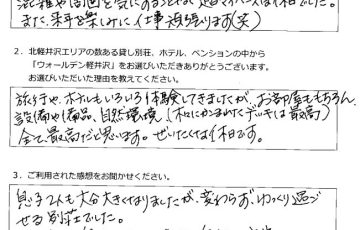 また、来年を楽しみに仕事頑張ります(笑)
2. 北軽井沢エリアの数ある貸し別荘、ホテル、ペンションの中から
「ウォールデン軽井沢」をお選びいただきありがとうございます。
お選びいただいた理由を教えてください。
旅行や、ホテルもいろいろ体験してきましたが、お部屋ももちろん、
設備や備品、自然環境(木にかこまれたデッキは最高)
全て最高だと思います。ぜいたくな休日です。
3. ご利用された感想をお聞かせください。
息子2人も大分大きくなりましたが、変わらずゆっくり過ご
せる別荘でした。